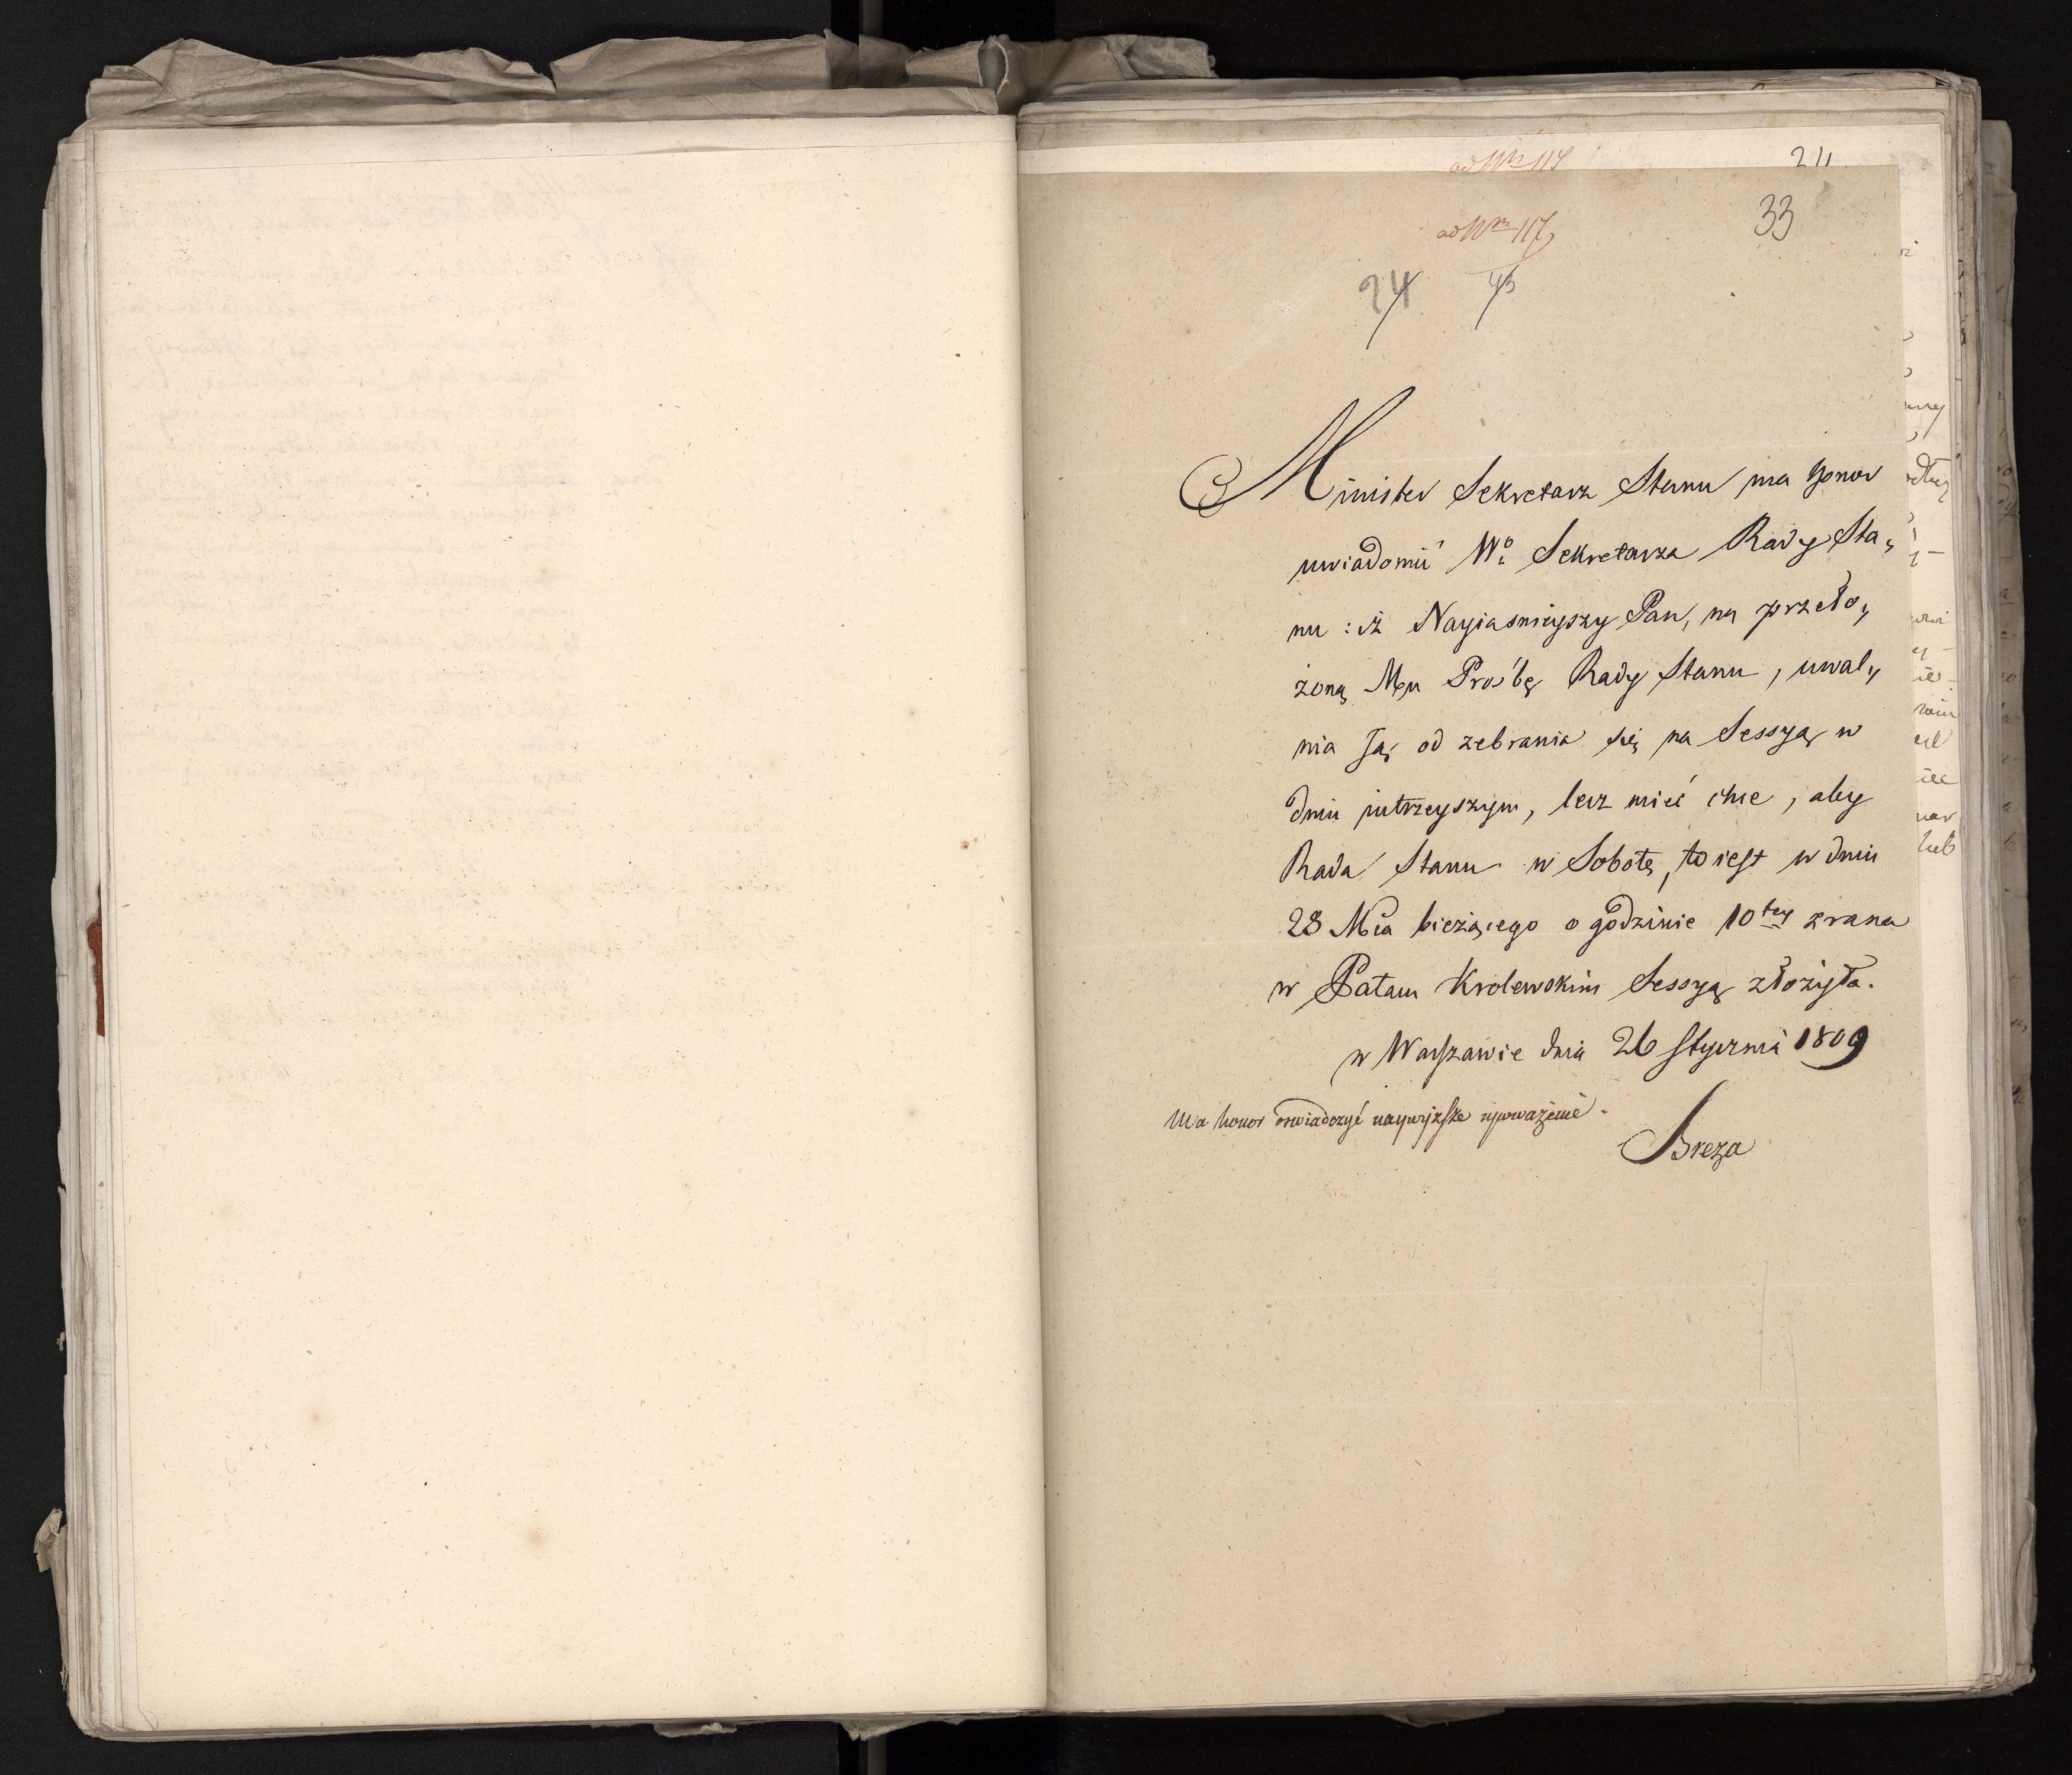 ad Nr 117
33
24 43
Minister Sekretarz Stanu ma honor
uwiadomić Wo Sekretarza Rady Sta„
nu : iż Nayiasnieyszy Pan, na przeło„
żoną Mu Prośbę Rady Stanu, uwal„
nia Ją od zebrania się na Sessyą w
dniu jutrzeyszym, lecz mieć chce, aby
Rada Stanu w Sobotę, to iest w dniu
28 Mca bieżącego o godzinie 10tey zrana
w Pałacu Krolewskim Sessyą złożyła.
w Warszawie dnia 26 Stycznia 1809
Ma honor oswiadczyć naywyższe uszanowanie.
Breza